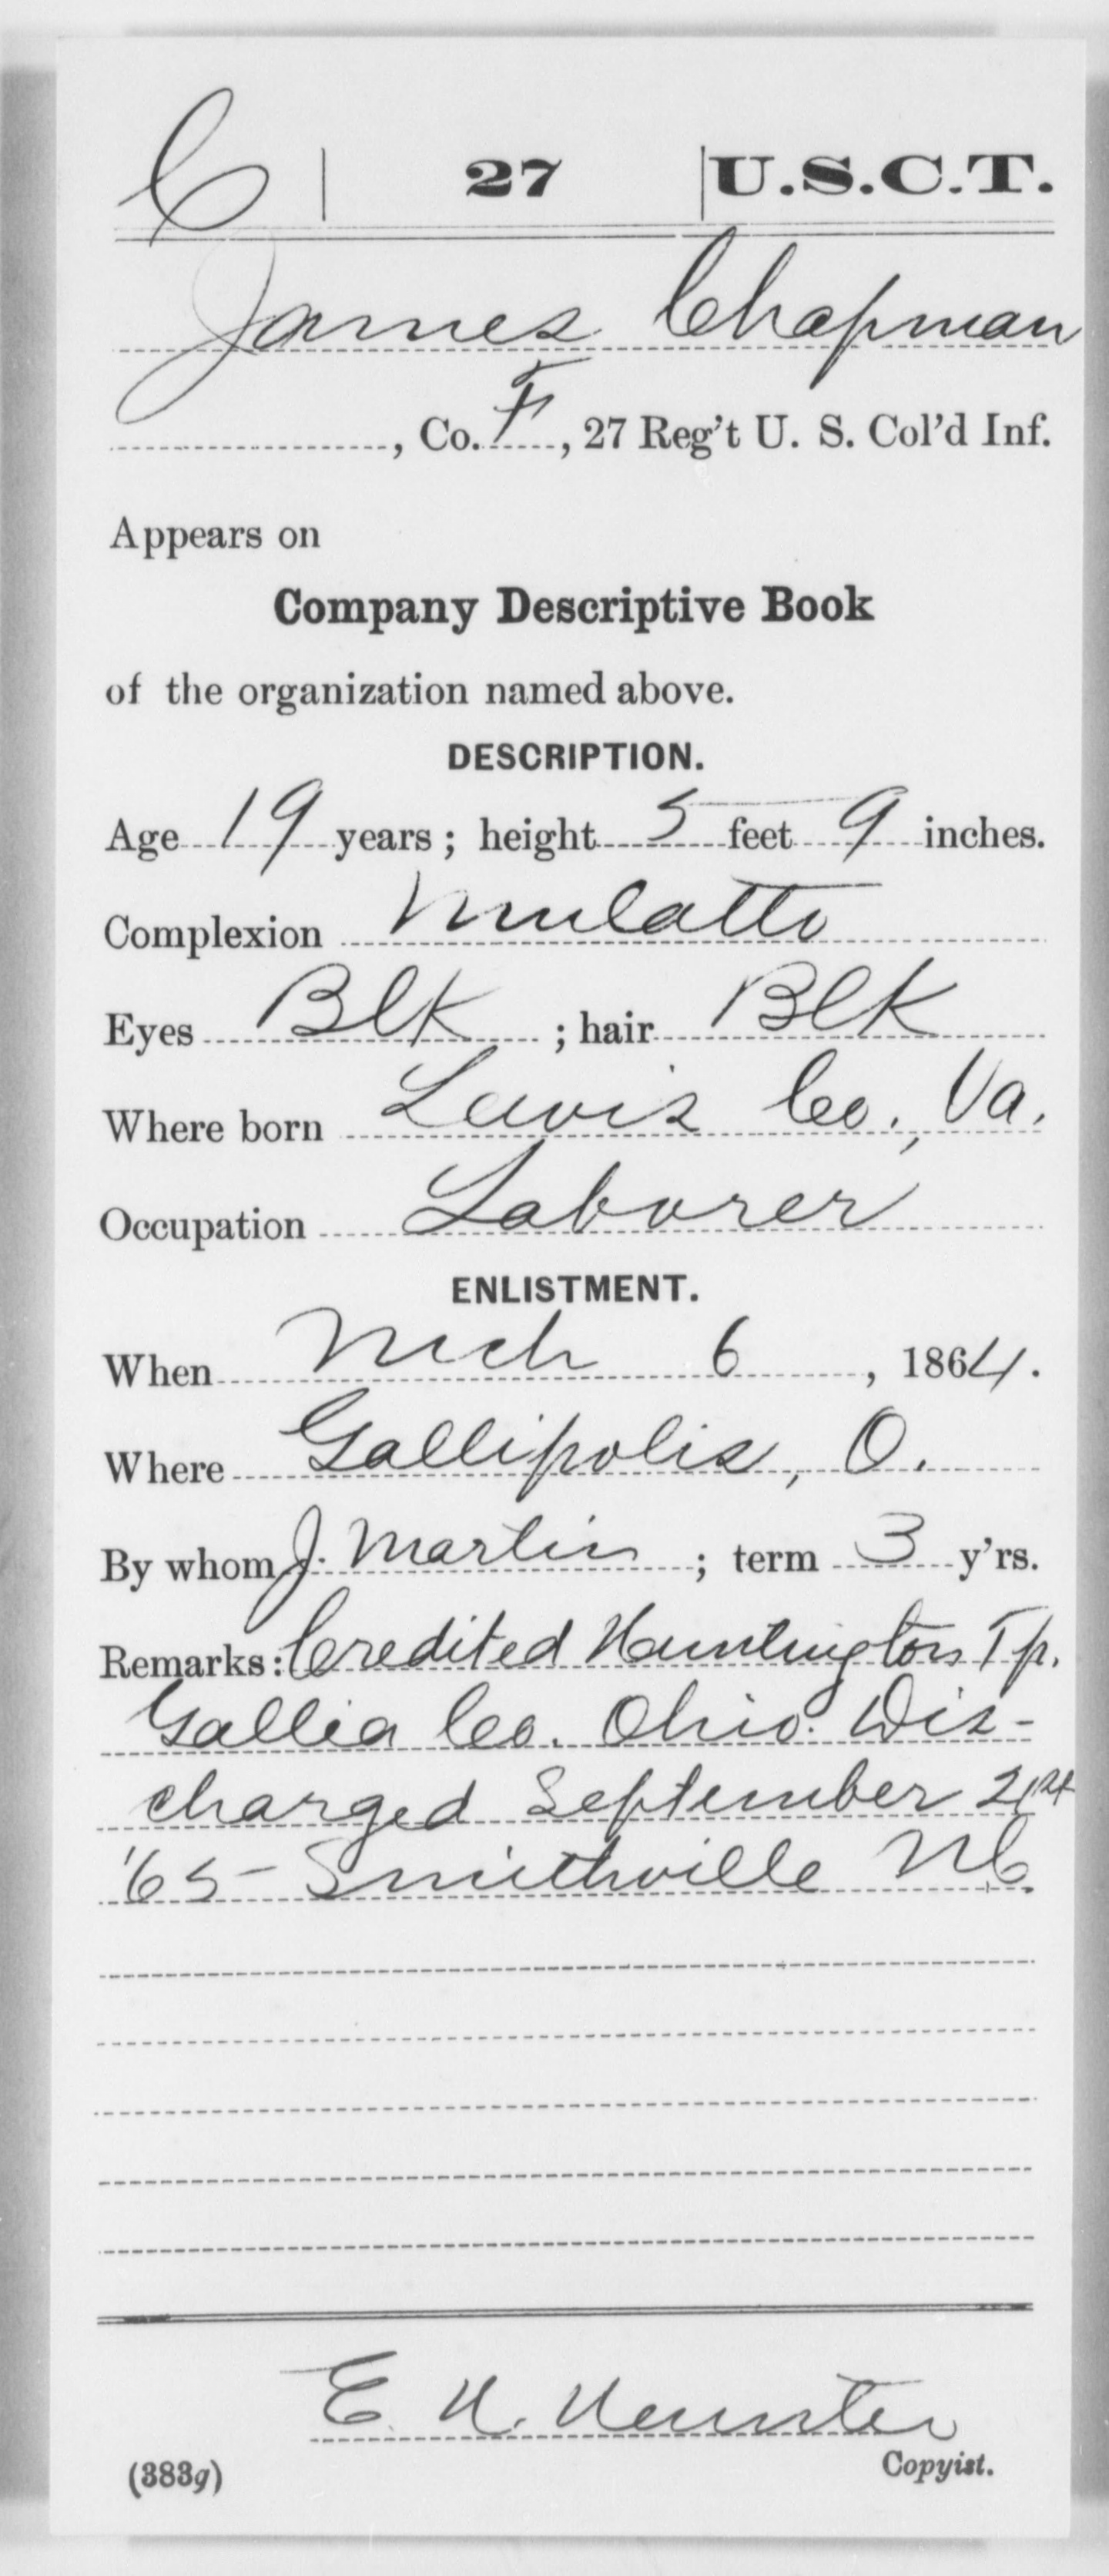 C | 27 | U.S.C.T.
James Chapman
, Co. F, 27 Reg't U. S. Col'd Inf.
Appears on
Company Descriptive Book
of the organization named above.
DESCRIPTION.
Age 19 years; height 5 feet 9 inches.
Complexion Mulatto
Eyes Blk ; hair Blk
Where born Lewis Co., Va.
Occupation Laborer
ENLISTMENT.
When Mch 6, 1864.
Where Gallipolis, O.
By whom J. Martin ; term 3 y'rs.
Remarks: Credited Huntington Tp.
Gallia Co. Ohio. Dis-
charged September 21st
'65 - Smithville N.C.
E. H.
(383g) Copyist.